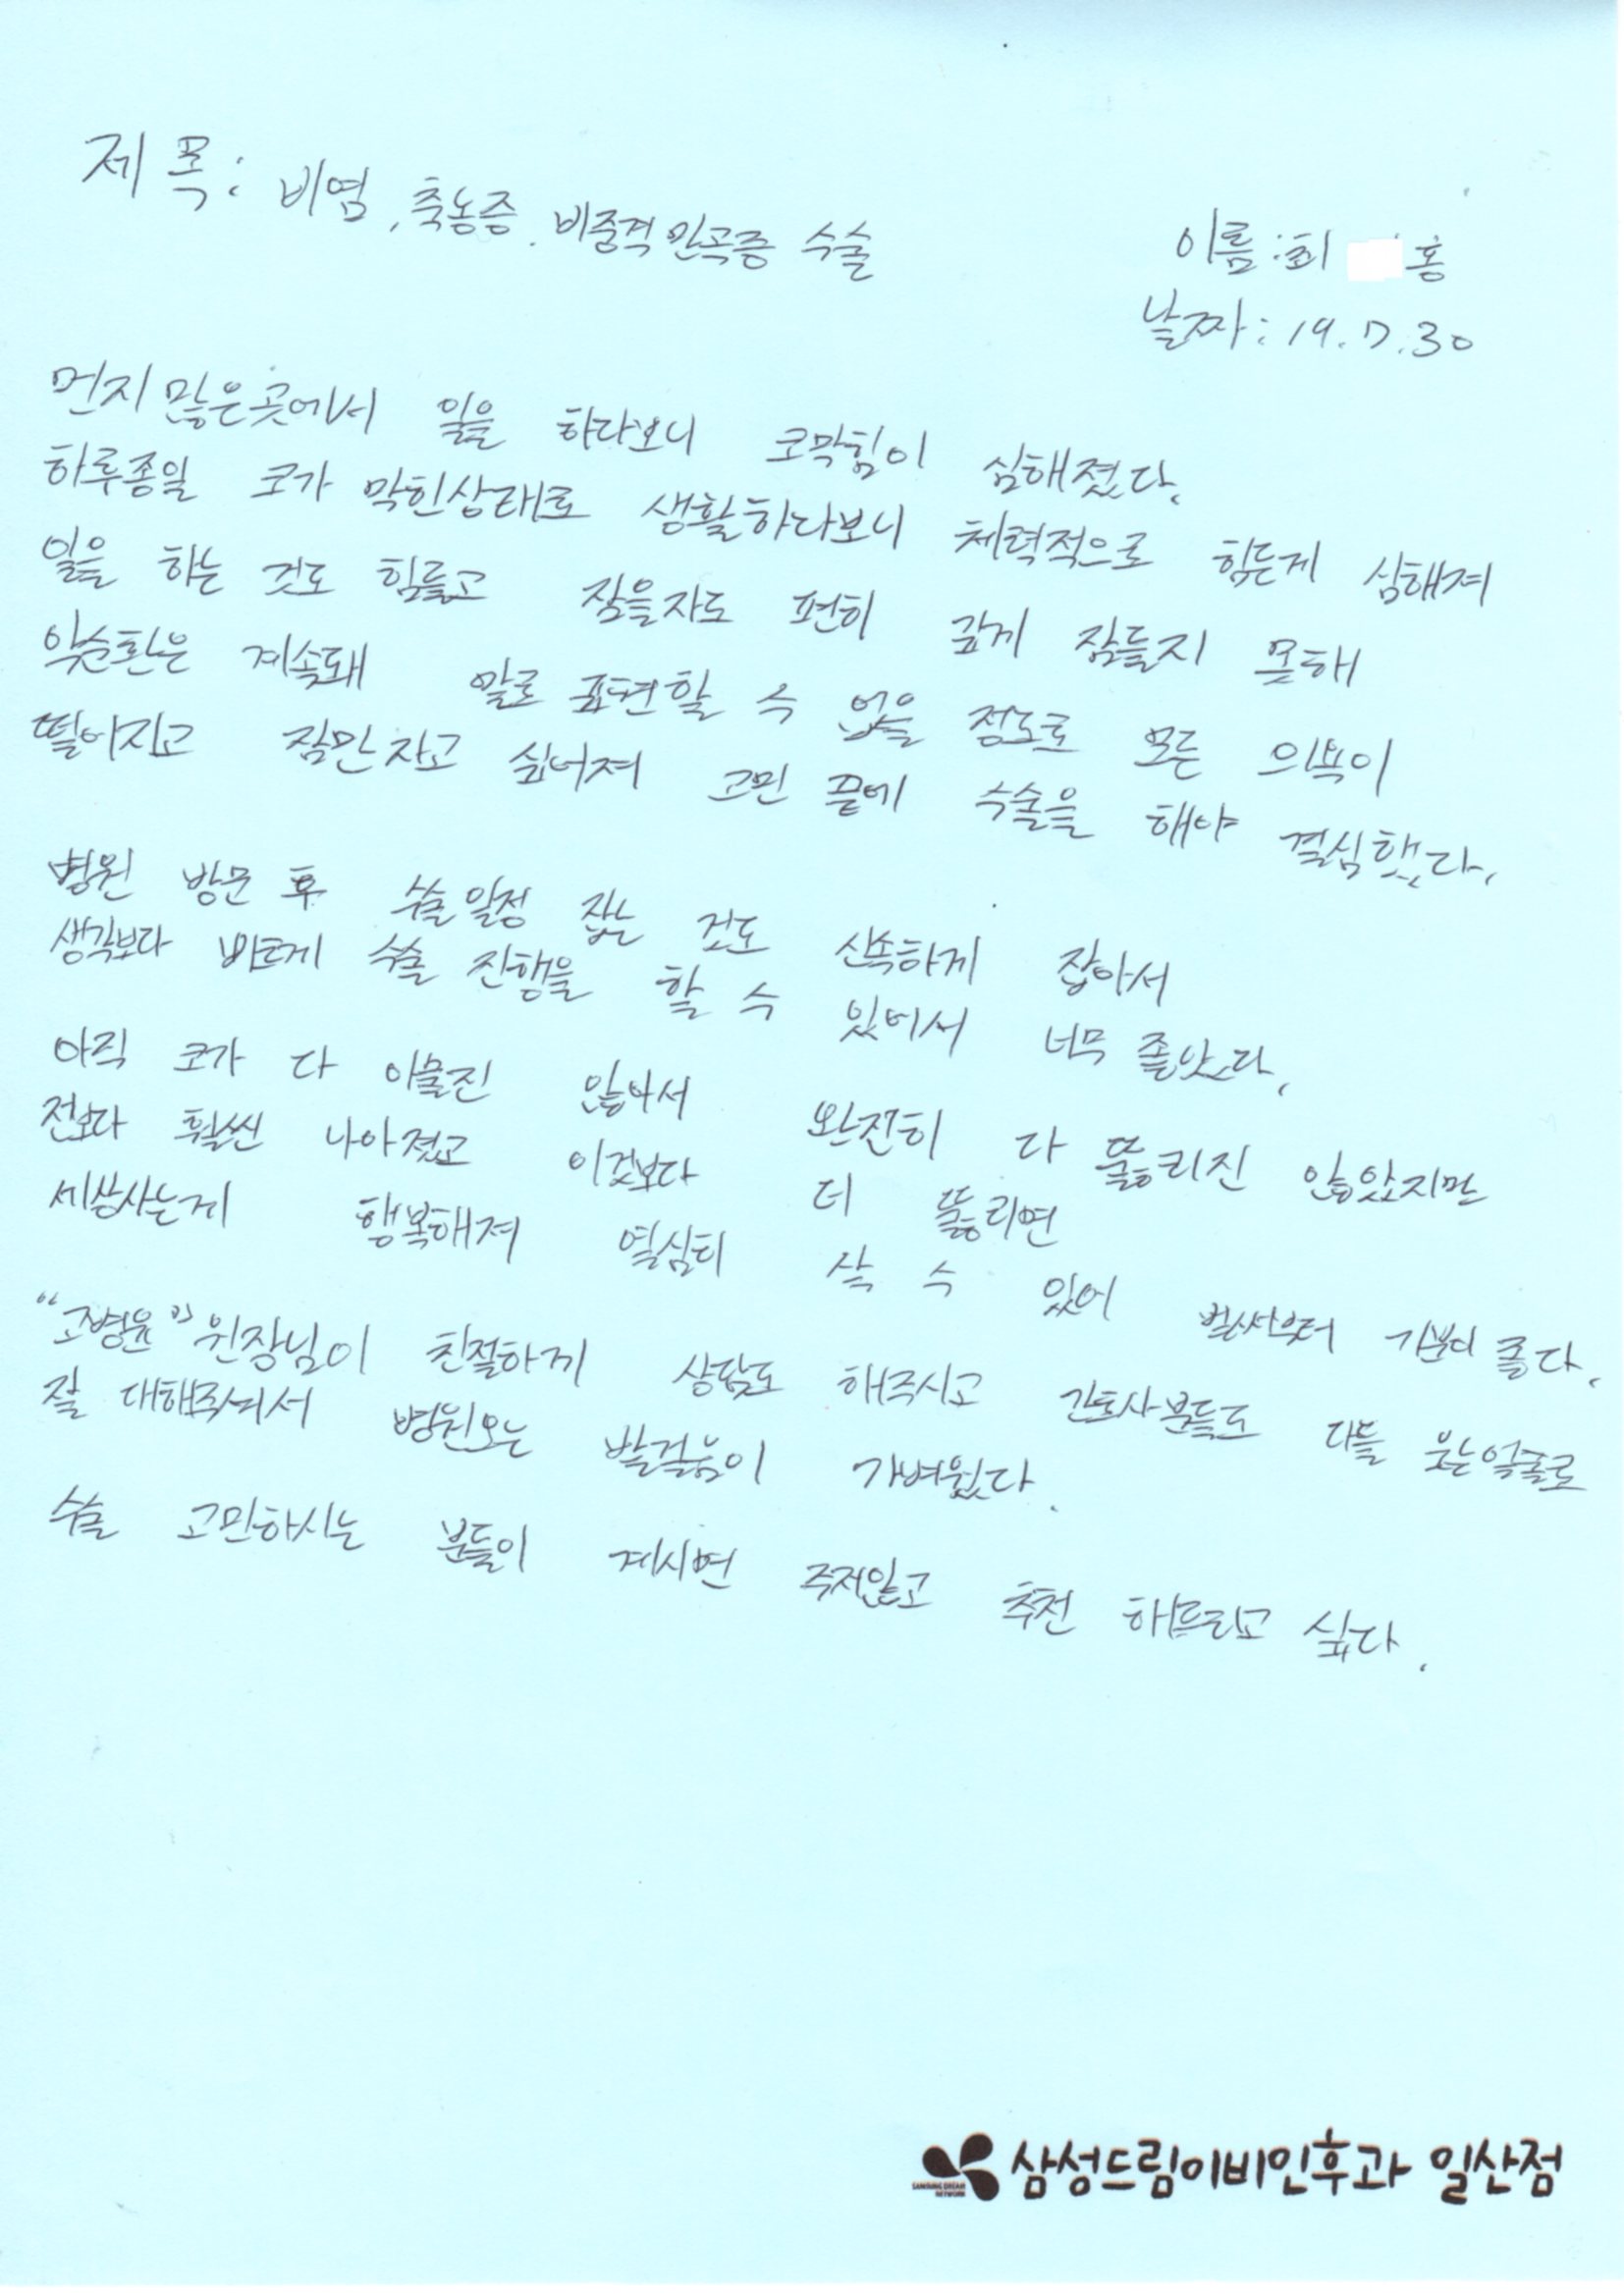 제 목: 비염, 축농증. 비중격 만곡증 수술
이름: 최 홍
날짜: 19.7.30
먼지 많은곳에서 일을 하다보니 코막힘이 심해졌다.
하루종일 코가 막힌상태로 생활하다보니 체력적으로 힘든게 심해져
일을 하는 것도 힘들고 잠을자도 편히 깊게 잠들지 못해
악순환은 계속돼 말로 표현할 수 없을 정도로 모든 의욕이
떨어지고 잠만자고 싶어져 고민 끝에 수술을 해야 결심했다.
병원 방문 후 수술일정 잡는 것도 신속하게 잡아서
생각보다 빠르게 수술 진행을 할 수 있어서 너무 좋았다.
아직 코가 다 아물진 않아서 완전히 다 뚫리진 않았지만
전보다 훨씬 나아졌고 이것보다 더 뚫리면
세상사는게 행복해져 열심히 살 수 있어 벌써부터 기분이 좋다.
"고병윤" 원장님이 친절하게 상담도 해주시고 간호사분들도 다들 웃는얼굴로
잘 대해주셔서 병원오는 발걸음이 가벼웠다.
수술 고민하시는 분들이 계시면 주저않고 추천 해드리고 싶다.
SAMSUNG DREAM
NETWORK
삼성드림이비인후과 일산점